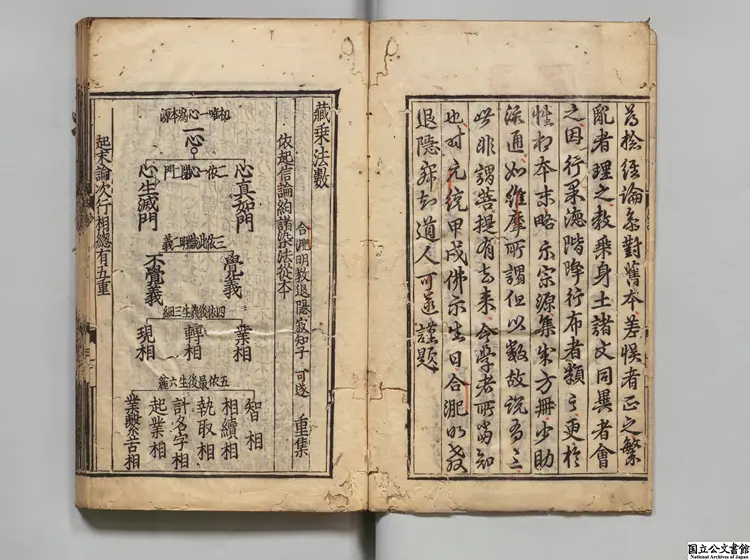 為撿經論糸對舊本差悞者正之繁
亂者理之教乗身土諸文同異者會
之因行果徳階降行布者類之更於
性相本末略示宗源集成方冊少助
流通如維摩所謂但以數故說有三
世非謂菩提有去来今學者所當知
也時元統甲戌佛示生日合淝明教
退隱寂知道人可遂謹題
藏乗法數
合淝明教退隱寂知子 可遂 重集
依起信論約諸染法從本
起末論次行相總有五重
初唯一心為本源
一心
二依一心開二門
心真如門
心生滅門
三依此門明二義
覺義
不覺義
四依後義生三細
業相
轉相
現相
五依最後生六麁
智相
相續相
執取相
計名字相
起業相
業繫苦相
国立公文書館
National Archives of Japan